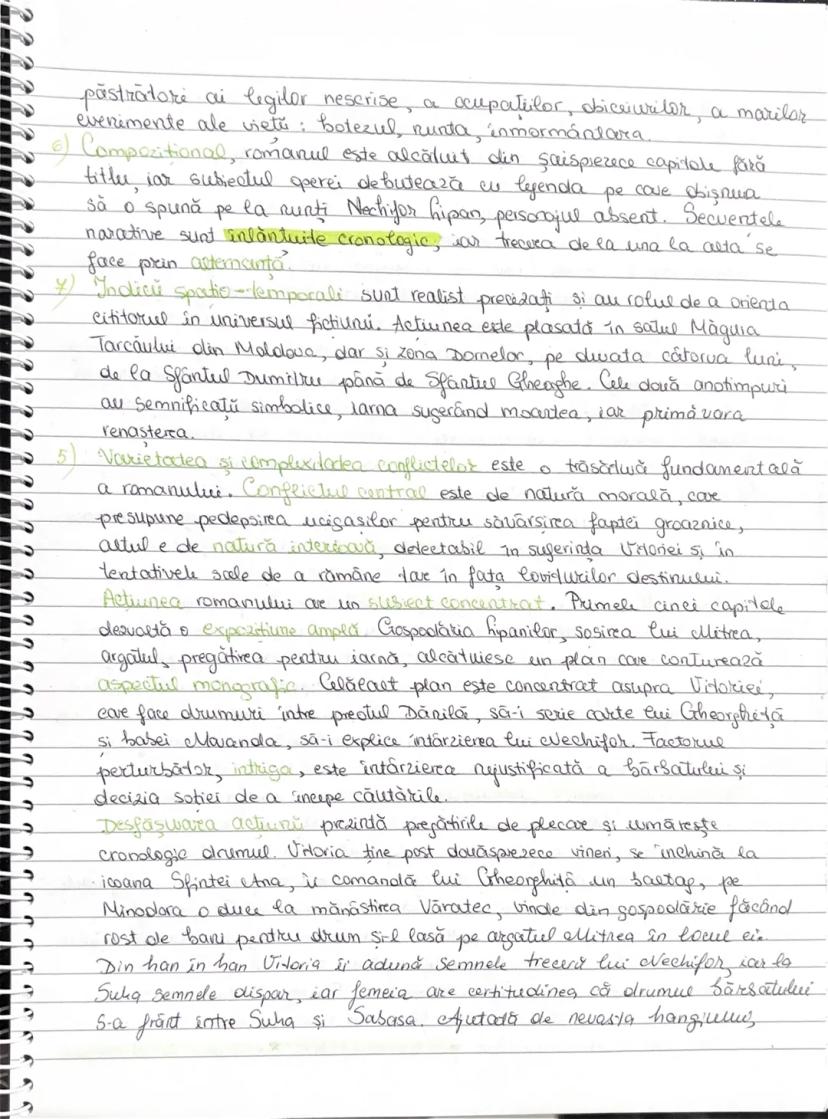 păstrători ai legilor nescrise, a ocupațiilor, obiceiurilor, a marilor
evenimente ale vieții: botezul, nunta, înmormântarea.
6) Compozițional, romanul este alcătuit din șaisprezece capitole fără
titlu, iar subiectul operei debutează cu legenda pe care obișnuia
să o spună pe la nunți Nechifor Lipan, personajul absent. Secvențele
narative sunt înlănțuite cronologic, iar trecerea de la una la alta se
face prin alternanță.
7) Indicii spațio-temporali sunt realist precizați și au rolul de a orienta
cititorul în universul ficțiunii. Acțiunea este plasată în satul Măgura
Tarcăului din Moldova, dar și zona Dornelor, pe durata câtorva luni,
de la Sfântul Dumitru până de Sfântul Gheoghe. Cele două anotimpuri
au semnificații simbolice, iarna sugerând moartea, iar primăvara
renașterea.
5) Varietatea și complexitatea conflictelor este o trăsătură fundamentală
a romanului. Conflictul central este de natură morală, care
presupune pedepsirea ucigașilor pentru săvârșirea faptei groaznice,
altul e de natură interioară, delectabil în suferința Vitoriei și în
tentativele sale de a rămâne tare în fața loviturilor destinului.
Acțiunea romanului are un subiect concentrat. Primele cinci capitole
dezvoltă o expozițiune amplă. Gospodăria Lipanilor, sosirea lui Mitrea,
argatul, pregătirea pentru iarnă, alcătuiesc un plan care conturează
aspectul monografic. Celălalt plan este concentrat asupra Vitoriei,
care face drumuri între preotul Dănilă, să-i scrie carte lui Gheorghiță
și babei Maranda, să-i explice întârzierea lui Nechifor. Factorul
perturbător, intriga, este întârzierea nejustificată a bărbatului și
decizia soției de a începe căutările.
Desfășurarea acțiunii prezintă pregătirile de plecare și urmărește
cronologic drumul. Vitoria ține post douăsprezece vineri, se închină la
icoana Sfintei Ana, îi comandă lui Gheorghiță un baltag, pe
Minodora o duce la mănăstirea Văratec, vinde din gospodărie făcând
rost de bani pentru drum și-l lasă pe argatul Mitrea în locul ei.
Din han în han Vitoria îi adună semnele trecerii lui Nechifor, iar la
Suha semnele dispar, iar femeia are certitudinea că drumul bărbatului
s-a frânt între Suha și Sabasa. Ajutată de nevasta hangiului,